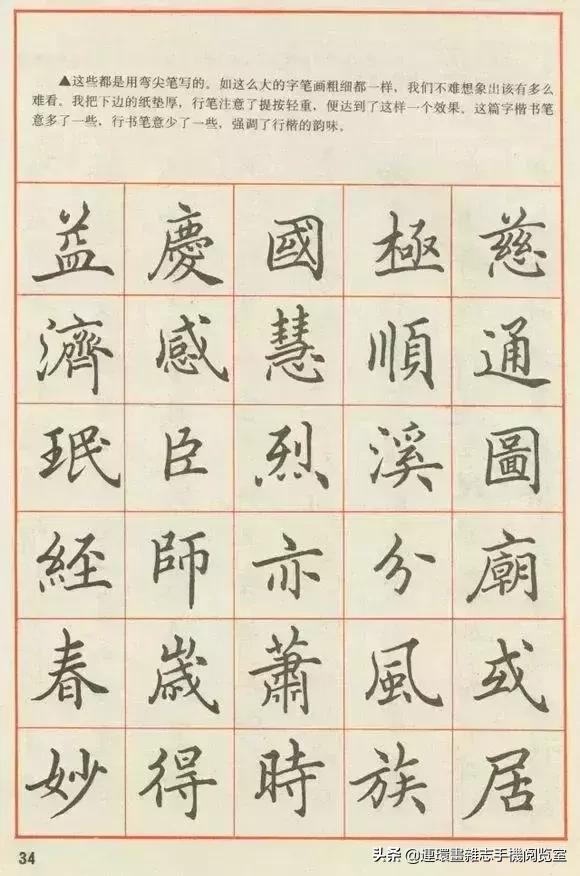 ▲这些都是用弯尖笔写的。如这么大的字笔画粗细都一样，我们不难想象出该有多么
难看。我把下边的纸垫厚，行笔注意了提按轻重，便达到了这样一个效果。这篇字楷书笔
意多了一些，行书笔意少了一些，强调了行楷的韵味。
益慶國極慈
濟感慧順通
珉臣烈溪圖
經師亦分廟
春歲蕭風或
妙得時族居
34
头条@連環畫雜志手機阅览室